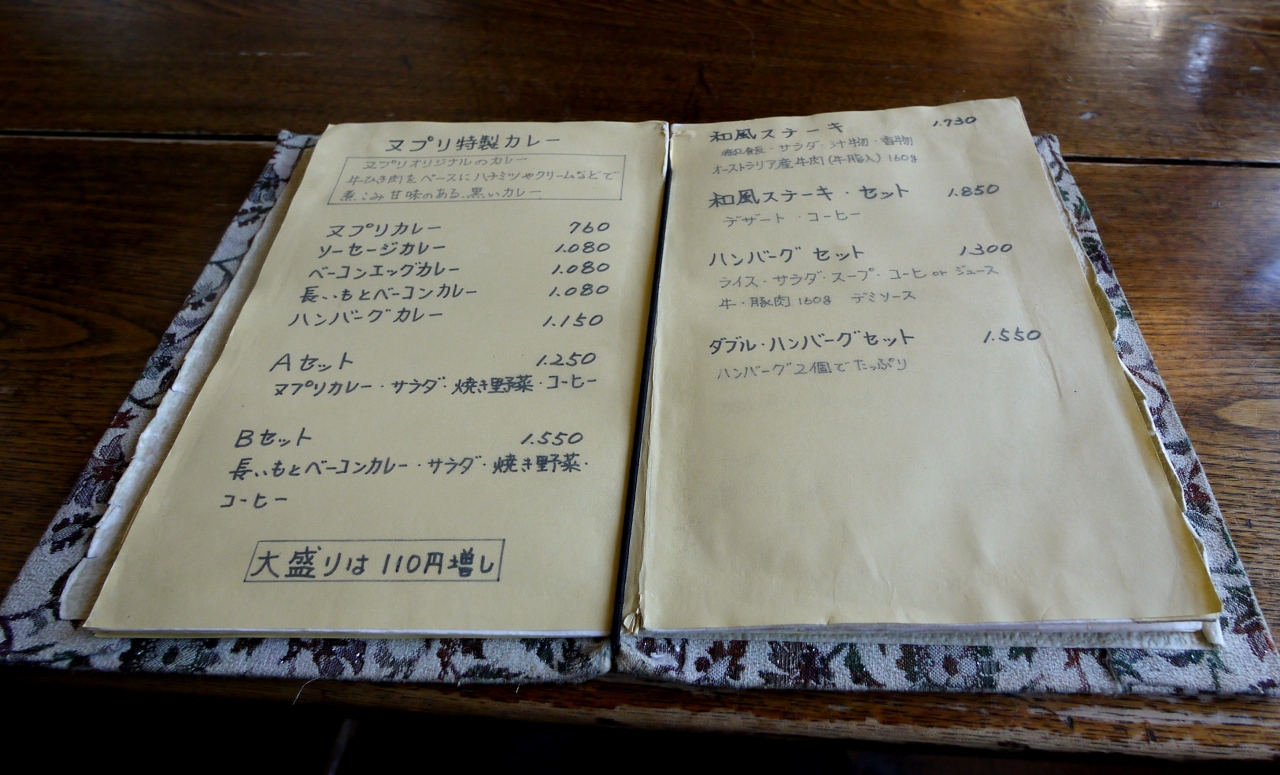 ヌプリ特製カレー
ヌプリオリジナルのカレー
牛ひき肉をベースにハチミツやクリームなどで
煮こみ甘味のある、黒いカレー
ヌプリカレー 760
ソーセージカレー 1.080
ベーコンエッグカレー 1.080
長いもとベーコンカレー 1.080
ハンバーグカレー 1.150
Aセット 1.250
ヌプリカレー・サラダ・焼き野菜・コーヒー
Bセット 1.550
長いもとベーコンカレー・サラダ・焼き野菜・
コーヒー
大盛りは110円増し
和風ステーキ 1.730
サラダ・汁物・香物
オーストラリア産牛肉(牛脂入) 160g
和風ステーキ・セット 1.850
デザート・コーヒー
ハンバーグセット 1.300
ライス・サラダ・スープ・コーヒ or ジュース
牛・豚肉 160g デミソース
ダブル・ハンバーグセット 1.550
ハンバーグ2個でたっぷり